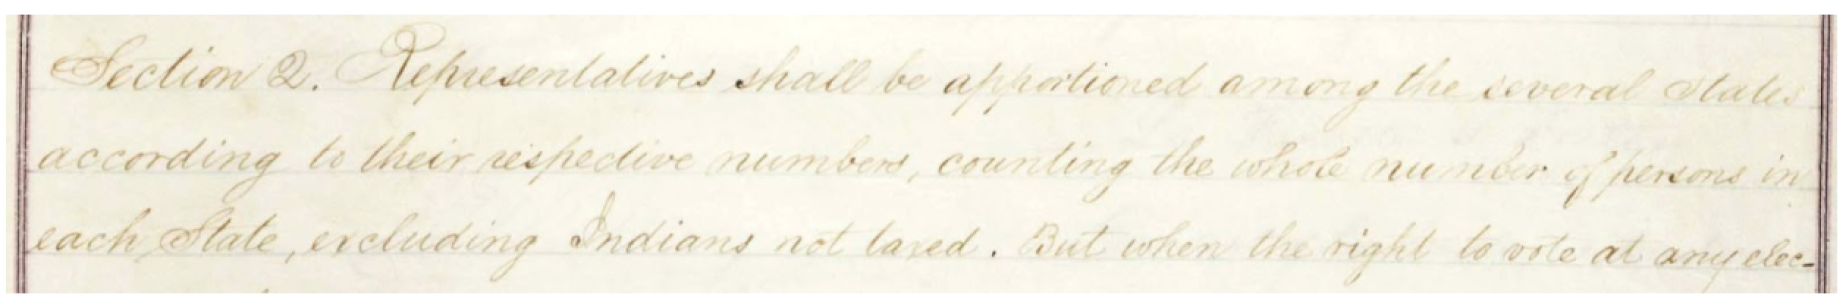 Section 2. Representatives shall be apportioned among the several States
according to their respective numbers, counting the whole number of persons in
each State, excluding Indians not taxed. But when the right to vote at any elec-